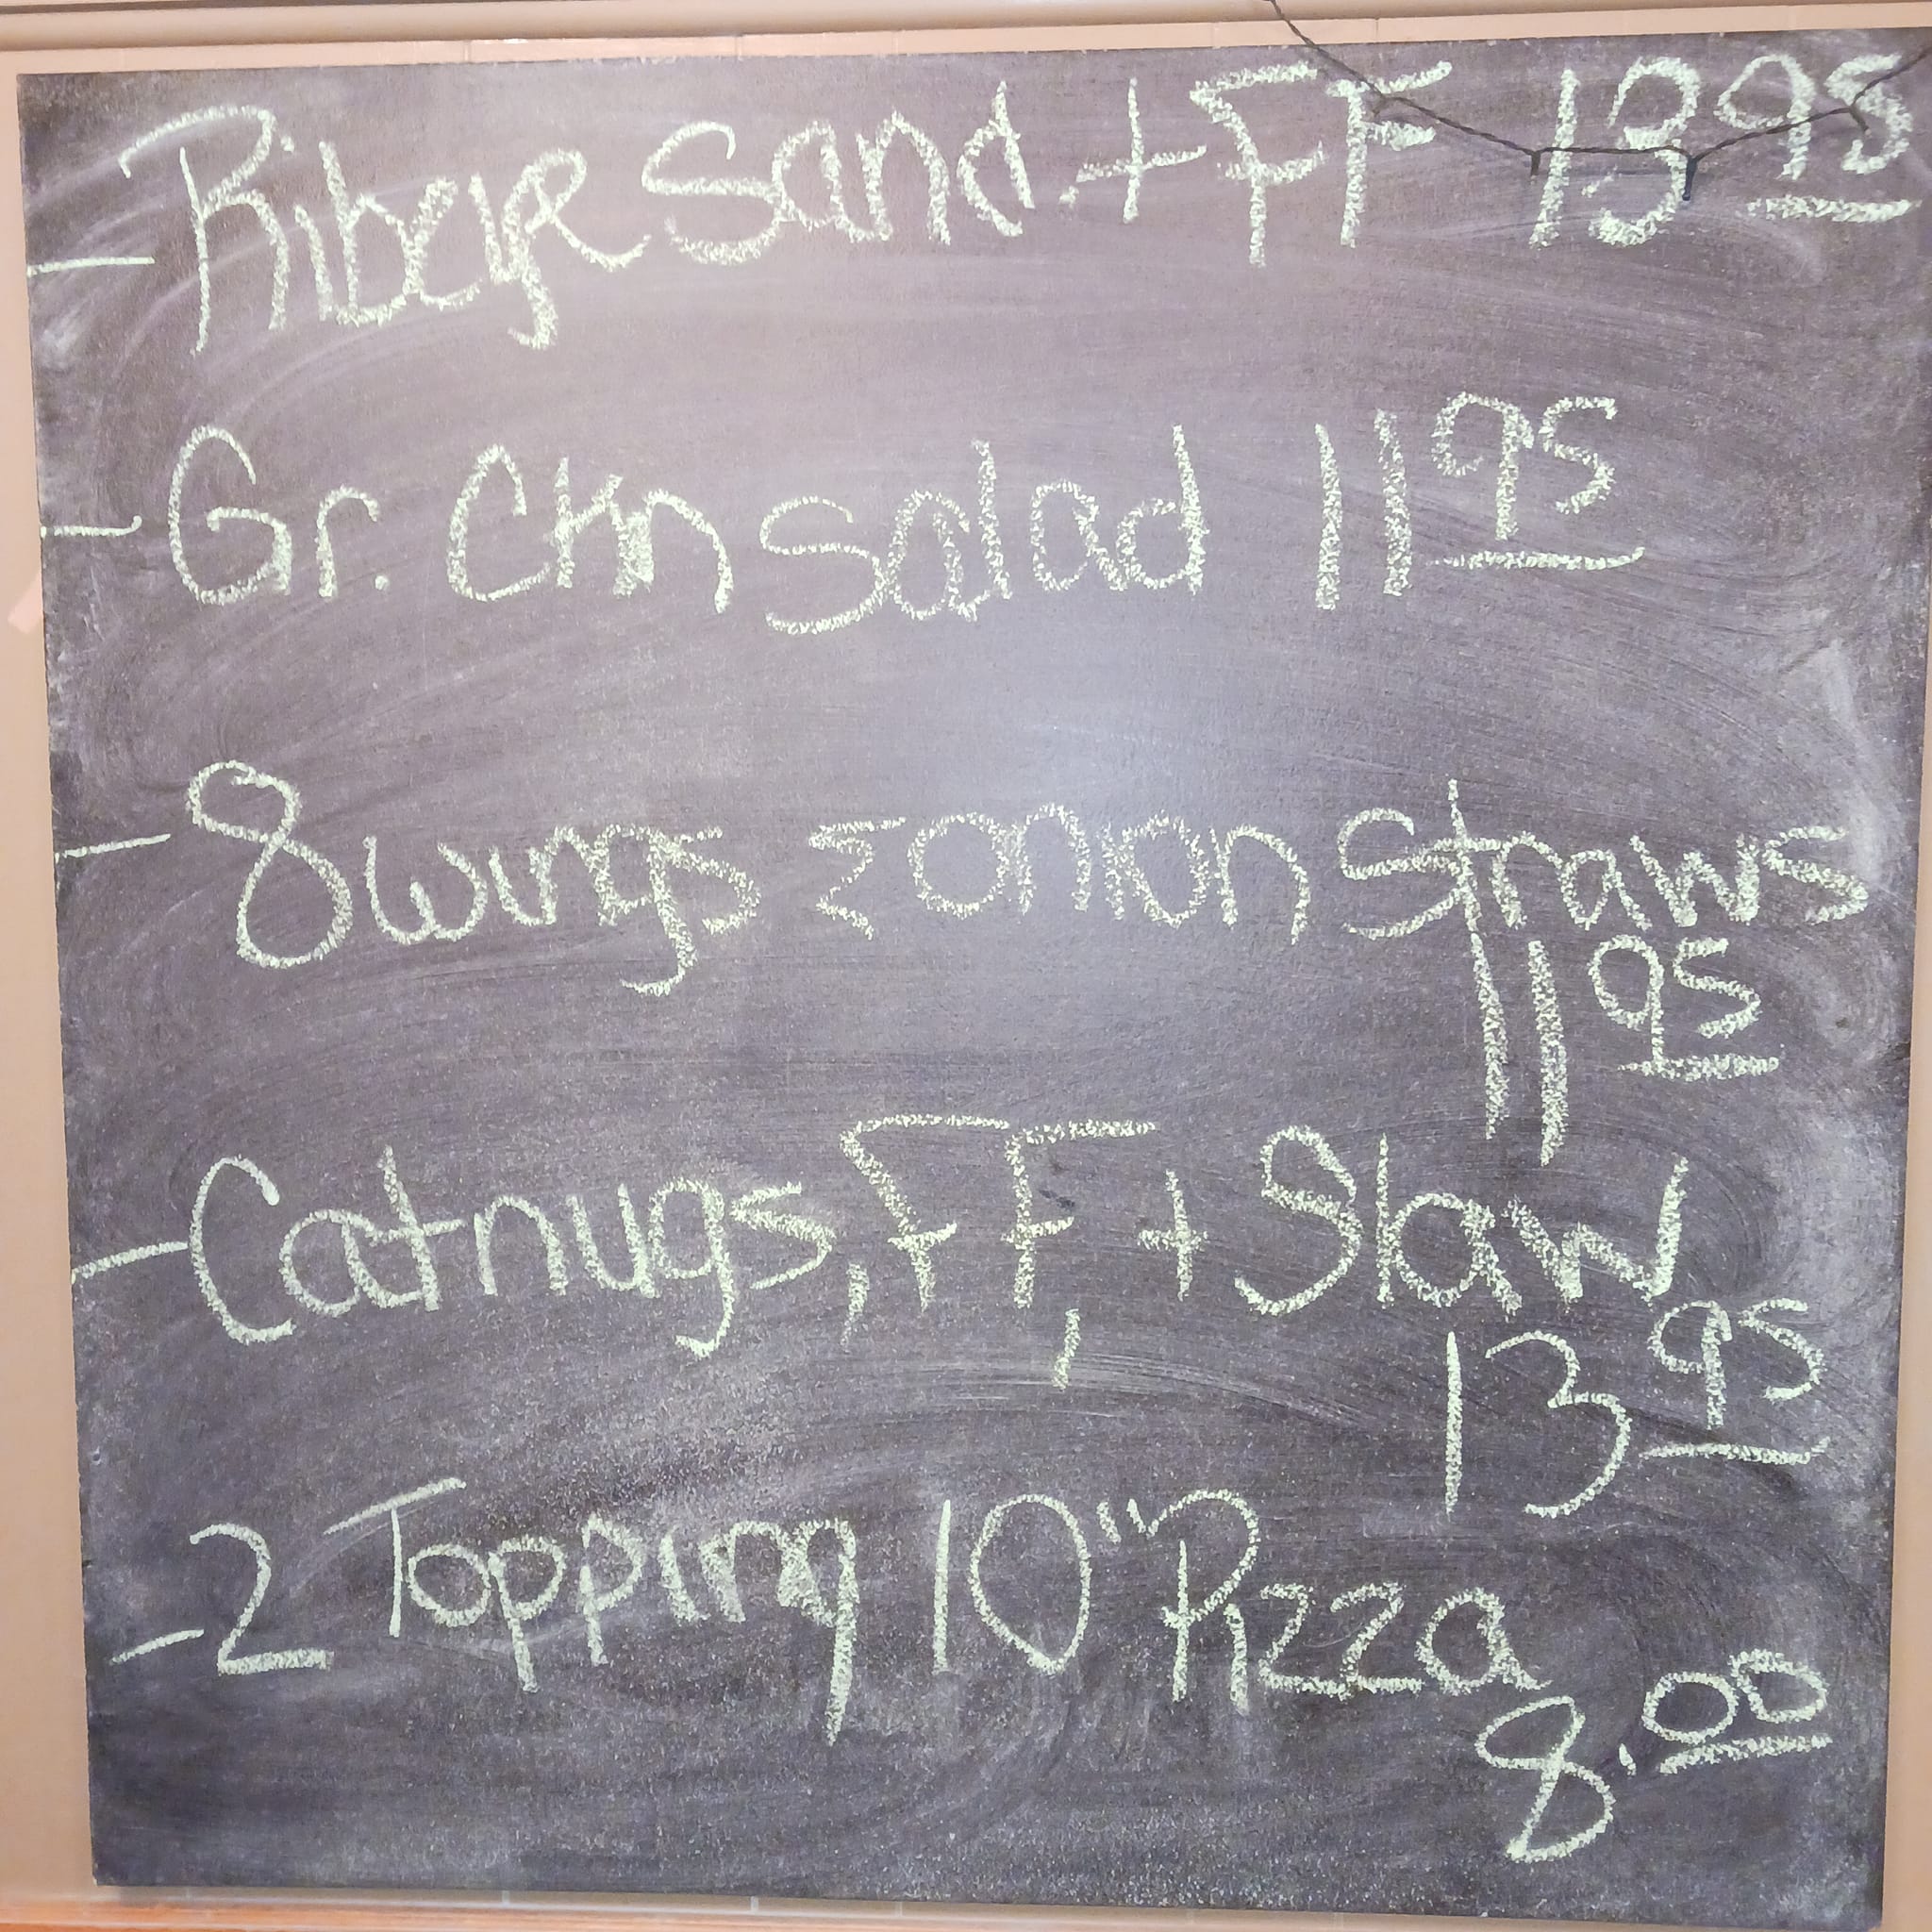 - Ribeye Sand. + FF 13 95
- Gr. Ckn Salad 11 95
- 8 wings & onion Straws
11 95
- Catnugs, FF, + Slaw
13 95
- 2 Topping 10" Pizza
8.00